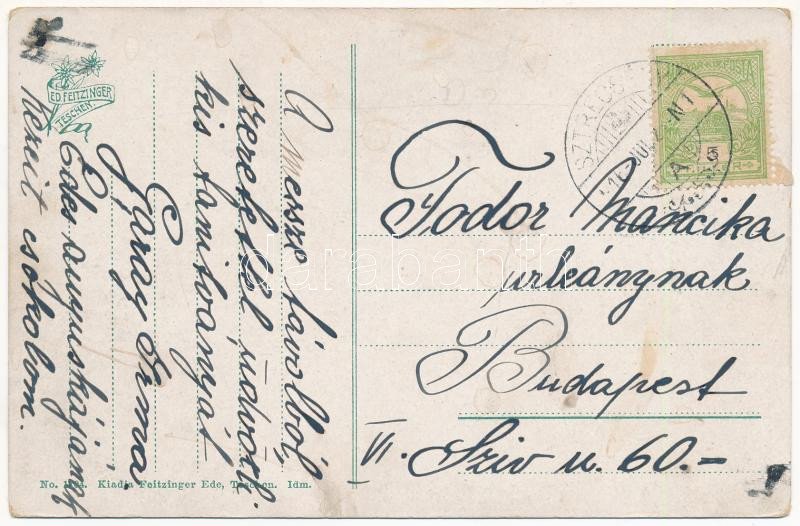 ED. FEITZINGER
TESCHEN
A messze távolból,
szeretettel üdvözli
kis tanitványát
Garay Irma
Édes anyuskájának
kezeit csókolom.
No. Kiadja Feitzinger Ede, Teschen. Idm.
5
A
Fodor Mancika
urleánynak
Budapest
VI. Sziv u. 60.-
darabanth